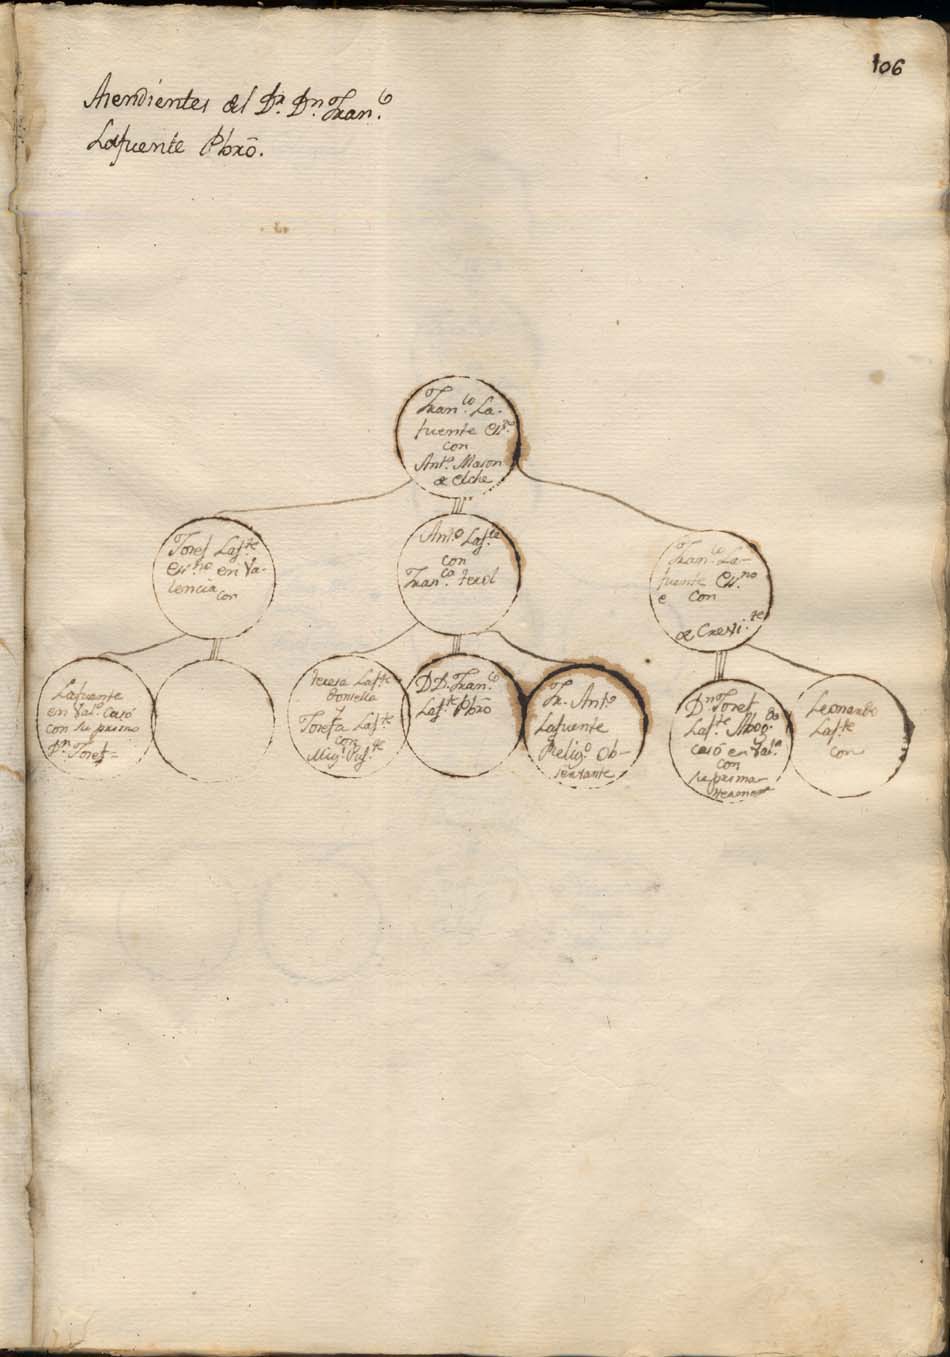 106
Asendientes del Dr. Dn. Franco.
Lafuente Pbro.
Franco. La-
fuente Essno.
con
Anta. Mason
de Elche
Josef Lafte.
Essno en Va-
lencia
con
Anto Lafte
con
Franca. Terol
Franco. La-
fuente Essno
e con
de Crevite.
Lafuente
en Vala. Casó
con su primo
Dn. Josef =
Teresa Lafte
Donsella
y
Josefa Lafte
con
Migl. Puigte
D D. Franco.
Lafte Pbro
Fr. Anto
Lafuente
Religo. Ob-
servante
Dn. Josef
Lafte. Abogdo
casó en Vala.
con
su prima
Leonardo
Lafte
con